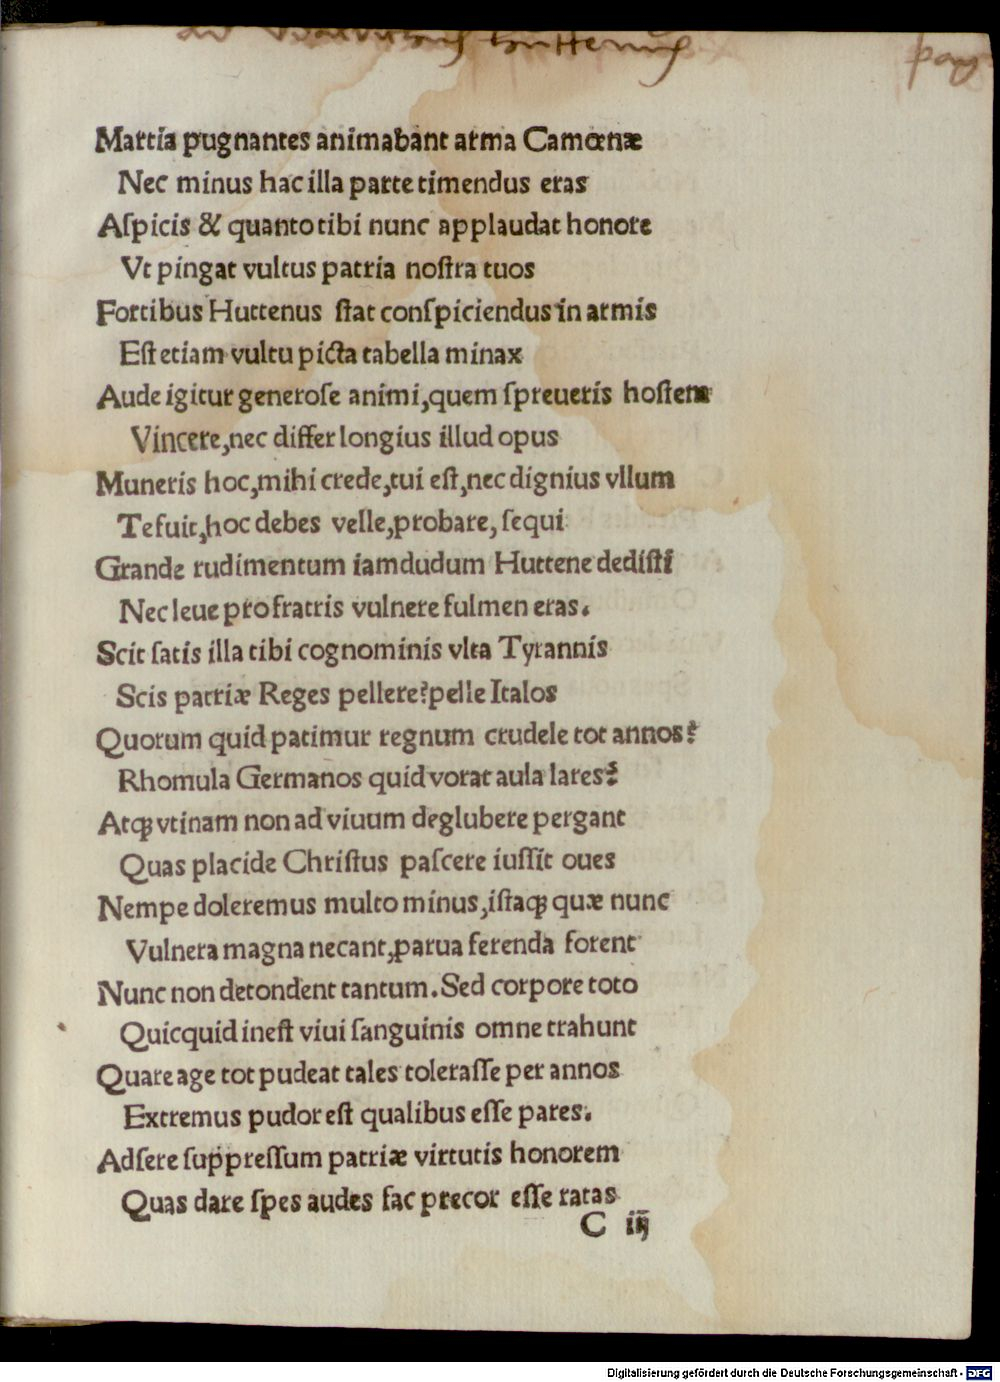 Martia pugnantes animabant arma Camœnæ
Nec minus hac illa parte timendus eras
Aſpicis & quanto tibi nunc applaudat honore
Vt pingat vultus patria noſtra tuos
Fortibus Huttenus ſtat conſpiciendus in armis
Eſt etiam vultu picta tabella minax
Aude igitur generoſe animi, quem ſpreueris hoſtem
Vincere, nec differ longius illud opus
Muneris hoc, mihi crede, tui eſt, nec dignius vllum
Te fuit, hoc debes velle, probare, ſequi
Grande rudimentum iamdudum Huttene dediſti
Nec leue pro fratris vulnere fulmen eras.
Scit ſatis illa tibi cognominis vlta Tyrannis
Scis patriæ Reges pellere? pelle Italos
Quorum quid patimur regnum crudele tot annos?
Rhomula Germanos quid vorat aula lares?
Atqꝫ vtinam non ad viuum deglubere pergant
Quas placide Chriſtus paſcere iuſſit oues
Nempe doleremus multo minus, iſtaqꝫ quæ nunc
Vulnera magna necant, parua ferenda forent
Nunc non detondent tantum. Sed corpore toto
Quicquid ineſt viui ſanguinis omne trahunt
Quare age tot pudeat tales toleraſſe per annos
Extremus pudor eſt qualibus eſſe pares.
Adſere ſuppreſſum patriæ virtutis honorem
Quas dare ſpes audes fac precor eſſe ratas
C iij
Digitalisierung gefördert durch die Deutsche Forschungsgemeinschaft - DFG